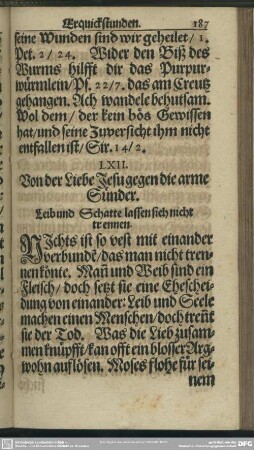 Erquickstunden. 187
seine Wunden sind wir geheilet / 1.
Pet. 2 / 24. Wider den Biß des
Wurms hilfft dir das Purpur-
würmlein / Ps. 22 / 7. das am Creutz
gehangen. Ach wandele behutsam.
Wol dem / der kein bös Gewissen
hat / und seine Zuversicht ihm nicht
entfallen ist / Sir. 14 / 2.
LXII.
Von der Liebe Jesu gegen die arme
Sünder.
Leib und Schatte lassen sich nicht
trennen.
NIchts ist so vest mit einander
verbundẽ / das man nicht tren-
nen könte. Mañ und Weib sind ein
Fleisch / doch setzt sie eine Eheschei-
dung von einander: Leib und Seele
machen einen Menschen / doch treñt
sie der Tod. Was die Lieb zusam-
men knüpfft / kan offt ein blosser Arg-
wohn auflösen. Moses flohe für sei-
nem